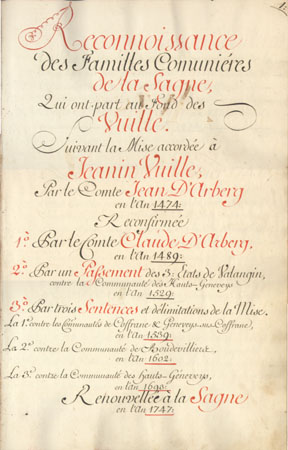 Reconnoissance
des Familles Comuniéres
de la Sagne,
Qui ont part au Fond des
Vuille.
Suivant la Mise accordée à
Jeanin Vuille,
Par le Comte Jean D'Arberg
en l'An 1474:
Reconfirmée
1º Par le Comte Claude D'Arberg.
en l'An 1489:
2º Par un Passement des 3: Etats de Valangin,
contre la Communauté des Hauts-Geneveys
en l'An 1529:
3º Par trois Sentences et délimitations de la Mise.
La 1e contre les Communautés de Coffrane & Geneveys-sur-Coffrane
en l'An 1539:
La 2e contre la Communauté de Boudevilliers,
en l'An 1602:
La 3e contre la Communauté des Hauts-Geneveys,
en l'An 1690:
Renouvellée à la Sagne
en l'An 1747: